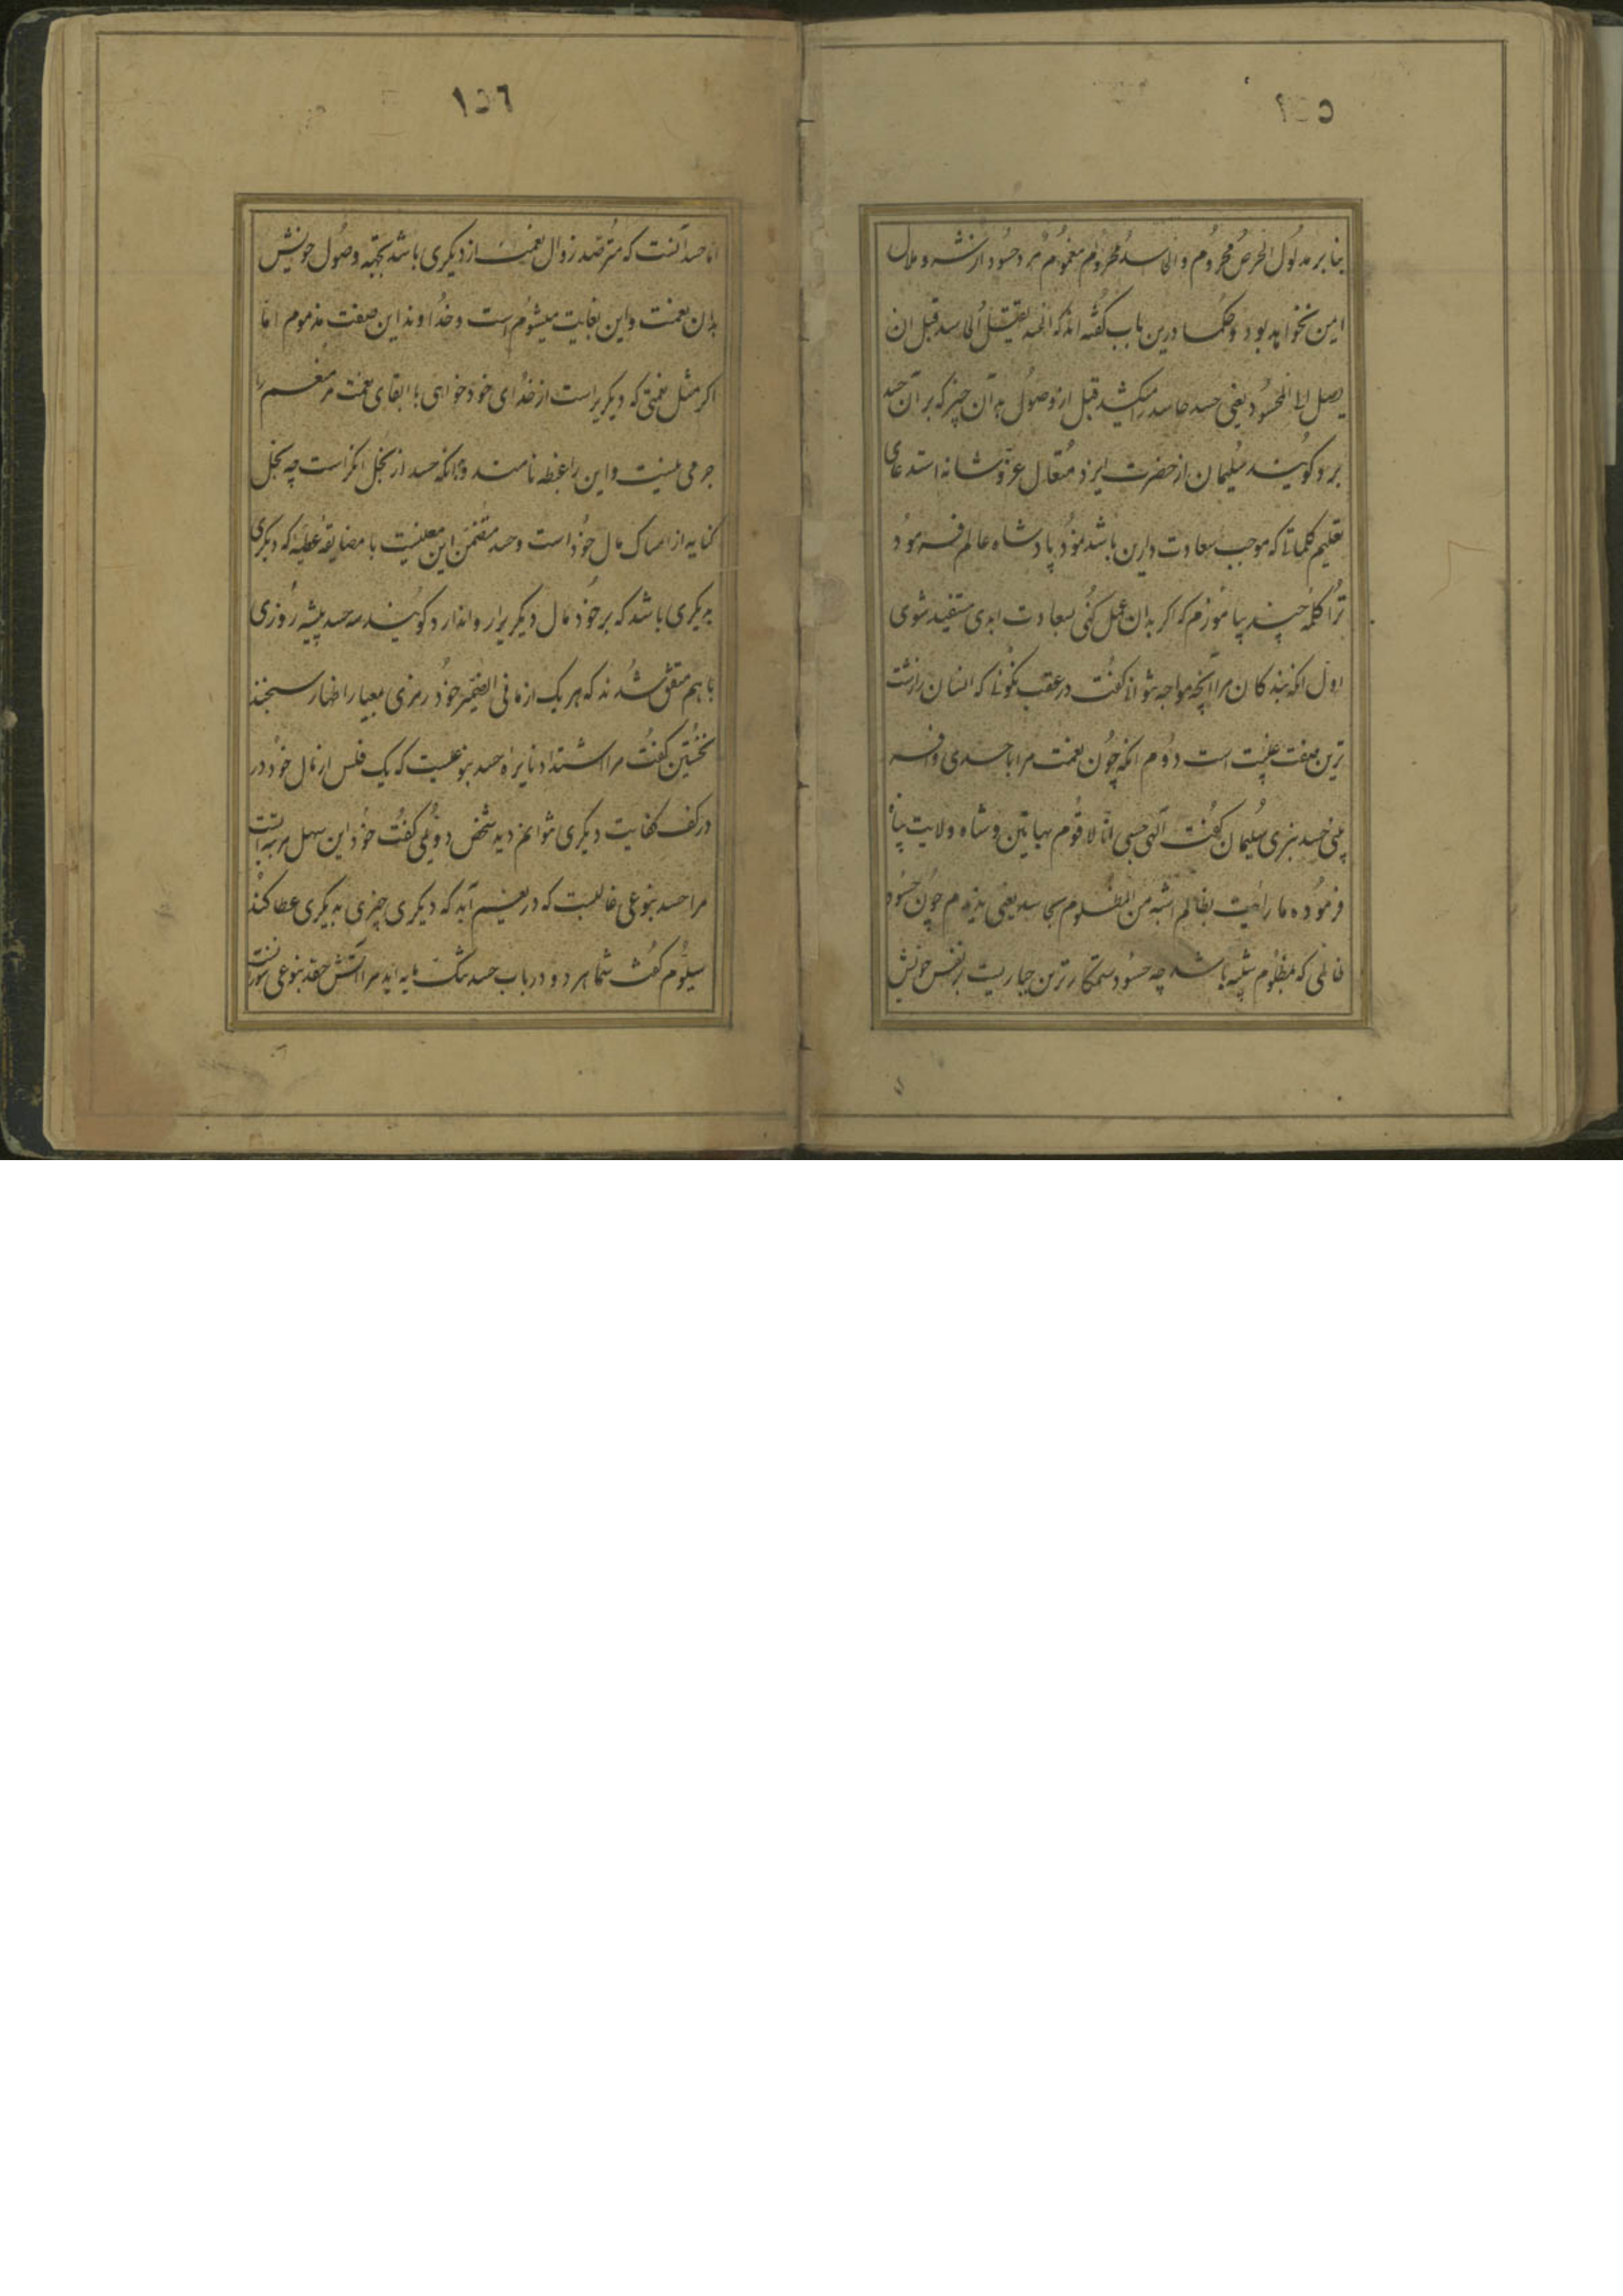 ١٥٥
بنابر مدلول الحرص محروم والحاسد محروم مغموم مرد حسود از نشه و ملال
ایمن نخواهد بود و حکما درین باب گفته اند که الحسد یقتل الحاسد قبل ان
یصل الی المحسود یعنی حسد حاسد را میکشد قبل از وصول بدان چیز که بر آن حسد
برد گویند سلیمان از حضرت ایزد متعال عز شانه استدعای
تعلیم کلماتی که موجب سعادت دارین باشد نمود پادشاه عالم فرمود
ترا کلمهٔ چند بیاموزم که اگر بدان عمل کنی بسعادت ابدی مستفید شوی
اول انکه بندکان مرا آنچه مواجه نتوانی گفت در عقب نگوئی که انسان را زشت
ترین صفت غیبت است دوم انکه چون نعمت مرا با احدی وافر
بینی حسد نبری سلیمان گفت الهی حسبی انا لا اقوم بهاتین و شاه ولایت پناه
فرموده ما رایت بظالم اشبه من المظلوم بحاسد یعنی ندیدم چون حسود
ظالمی که بمظلوم شبیه باشد چه حسود ستمکارترین جاریست بر نفس خویش
١٥٦
اما حسد آنست که مترصد زوال نعمت از دیکری باشد بجهة وصول خویش
بدان نعمت و این بغایت میشوم است و خداوند این صفت مذموم اما
اکر مثل نعمتی که دیکریراست از خدای خود خواهی با ابقای نعمت مر منعم را
جرمی نیست و این را غبطه نامند و بدانکه حسد از بخل انکر است چه بخل
کنایه از امساک مال خود است و حسد متضمن این معنیست با مضایقه عطیهٔ که دیکری
بدیکری باشد که بر خود مال دیکریرا روا ندارد گویند سه حسد پیشه روزی
با هم متفق شدند که هر یک از ما فی الضمیر خود رمزی بمعیار اظهار سنجند
نخستین گفت مرا اشتداد نایرهٔ حسد بنوعیست که یک فلس از مال خود در
در کف کفایت دیکری نتوانم دید شخص دویمی گفت خود این سهل مرتبه ایست
مرا حسد بنوعی غالبست که دریغم آید که دیکری چیزی بدیکری عطا کند
سیوم گفت شما هر دو در باب حسد تنک مایه اید مرا آتش حقد بنوعی سورتست